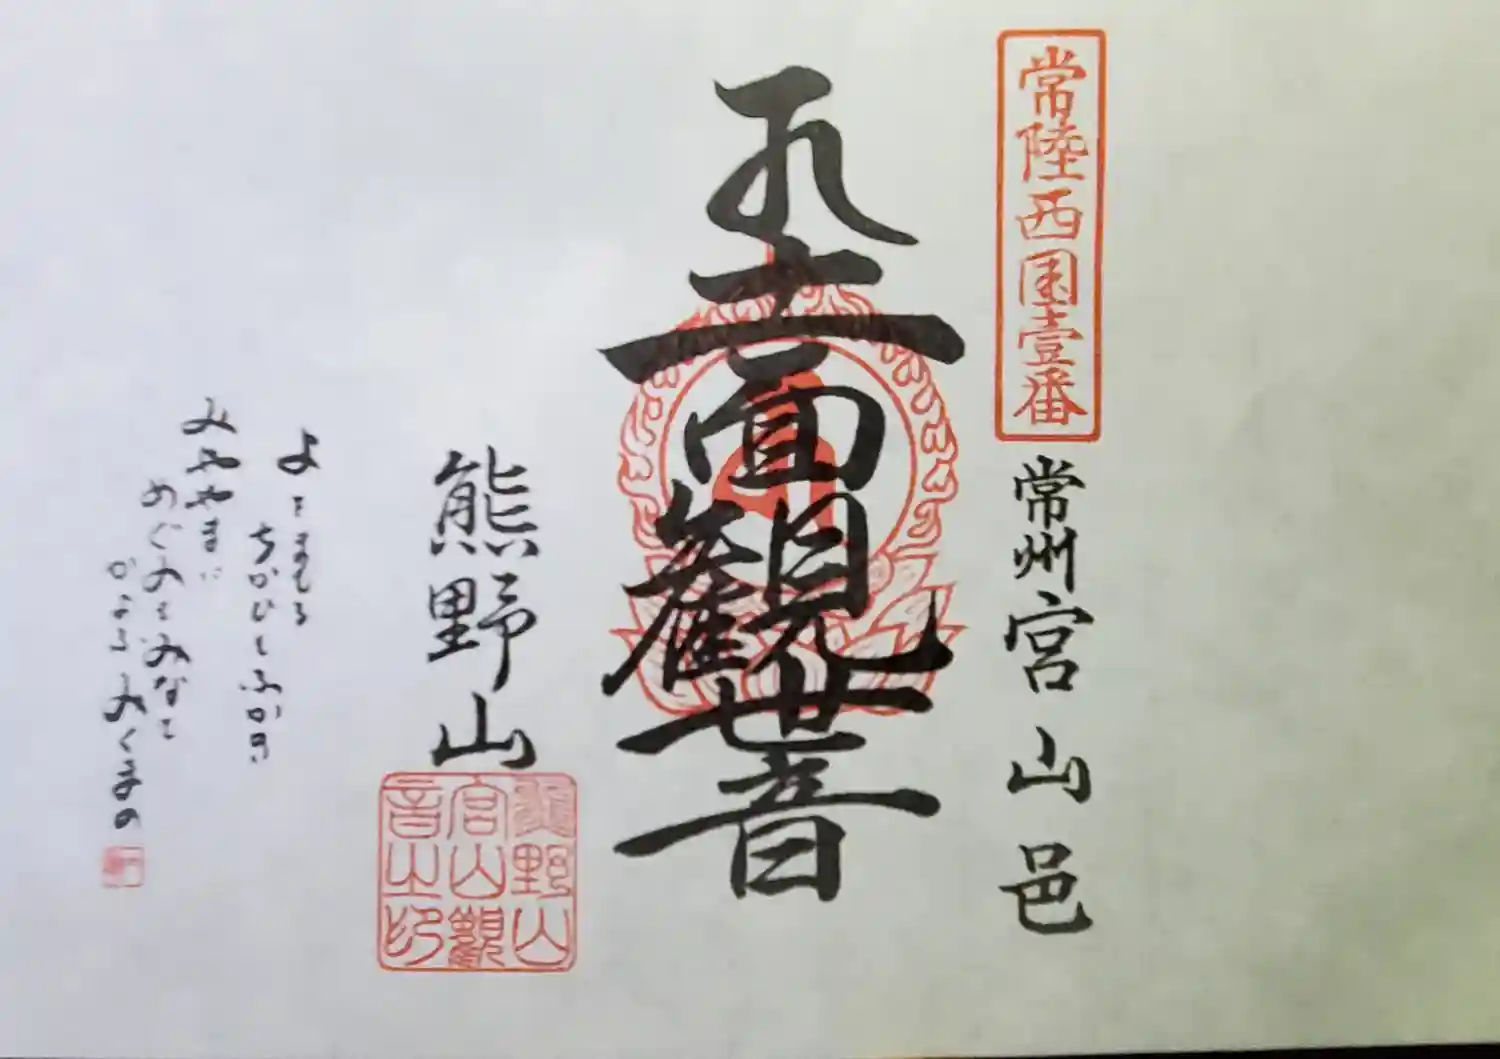 常陸西国壹番
常州宮山邑
十一面觀世音
熊野山
熊野山
宮山觀
音之印
よをまもる
ちかひしふかき
みややまに
めぐみをみなと
かよふみくまの